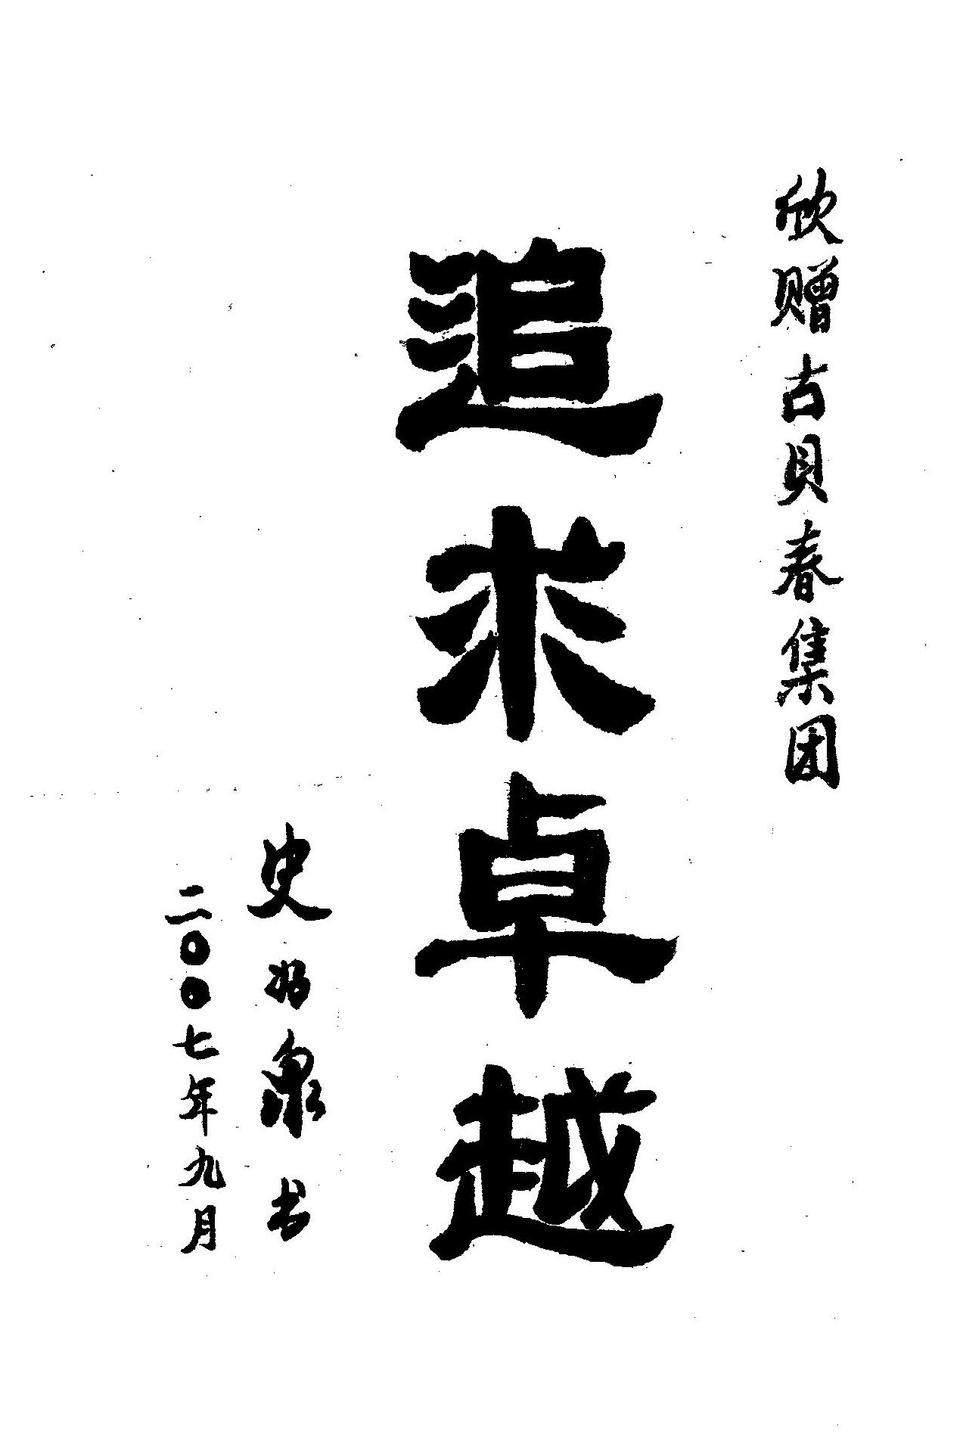 欣赠古贝春集团
追求卓越
史如泉书
二〇〇七年九月